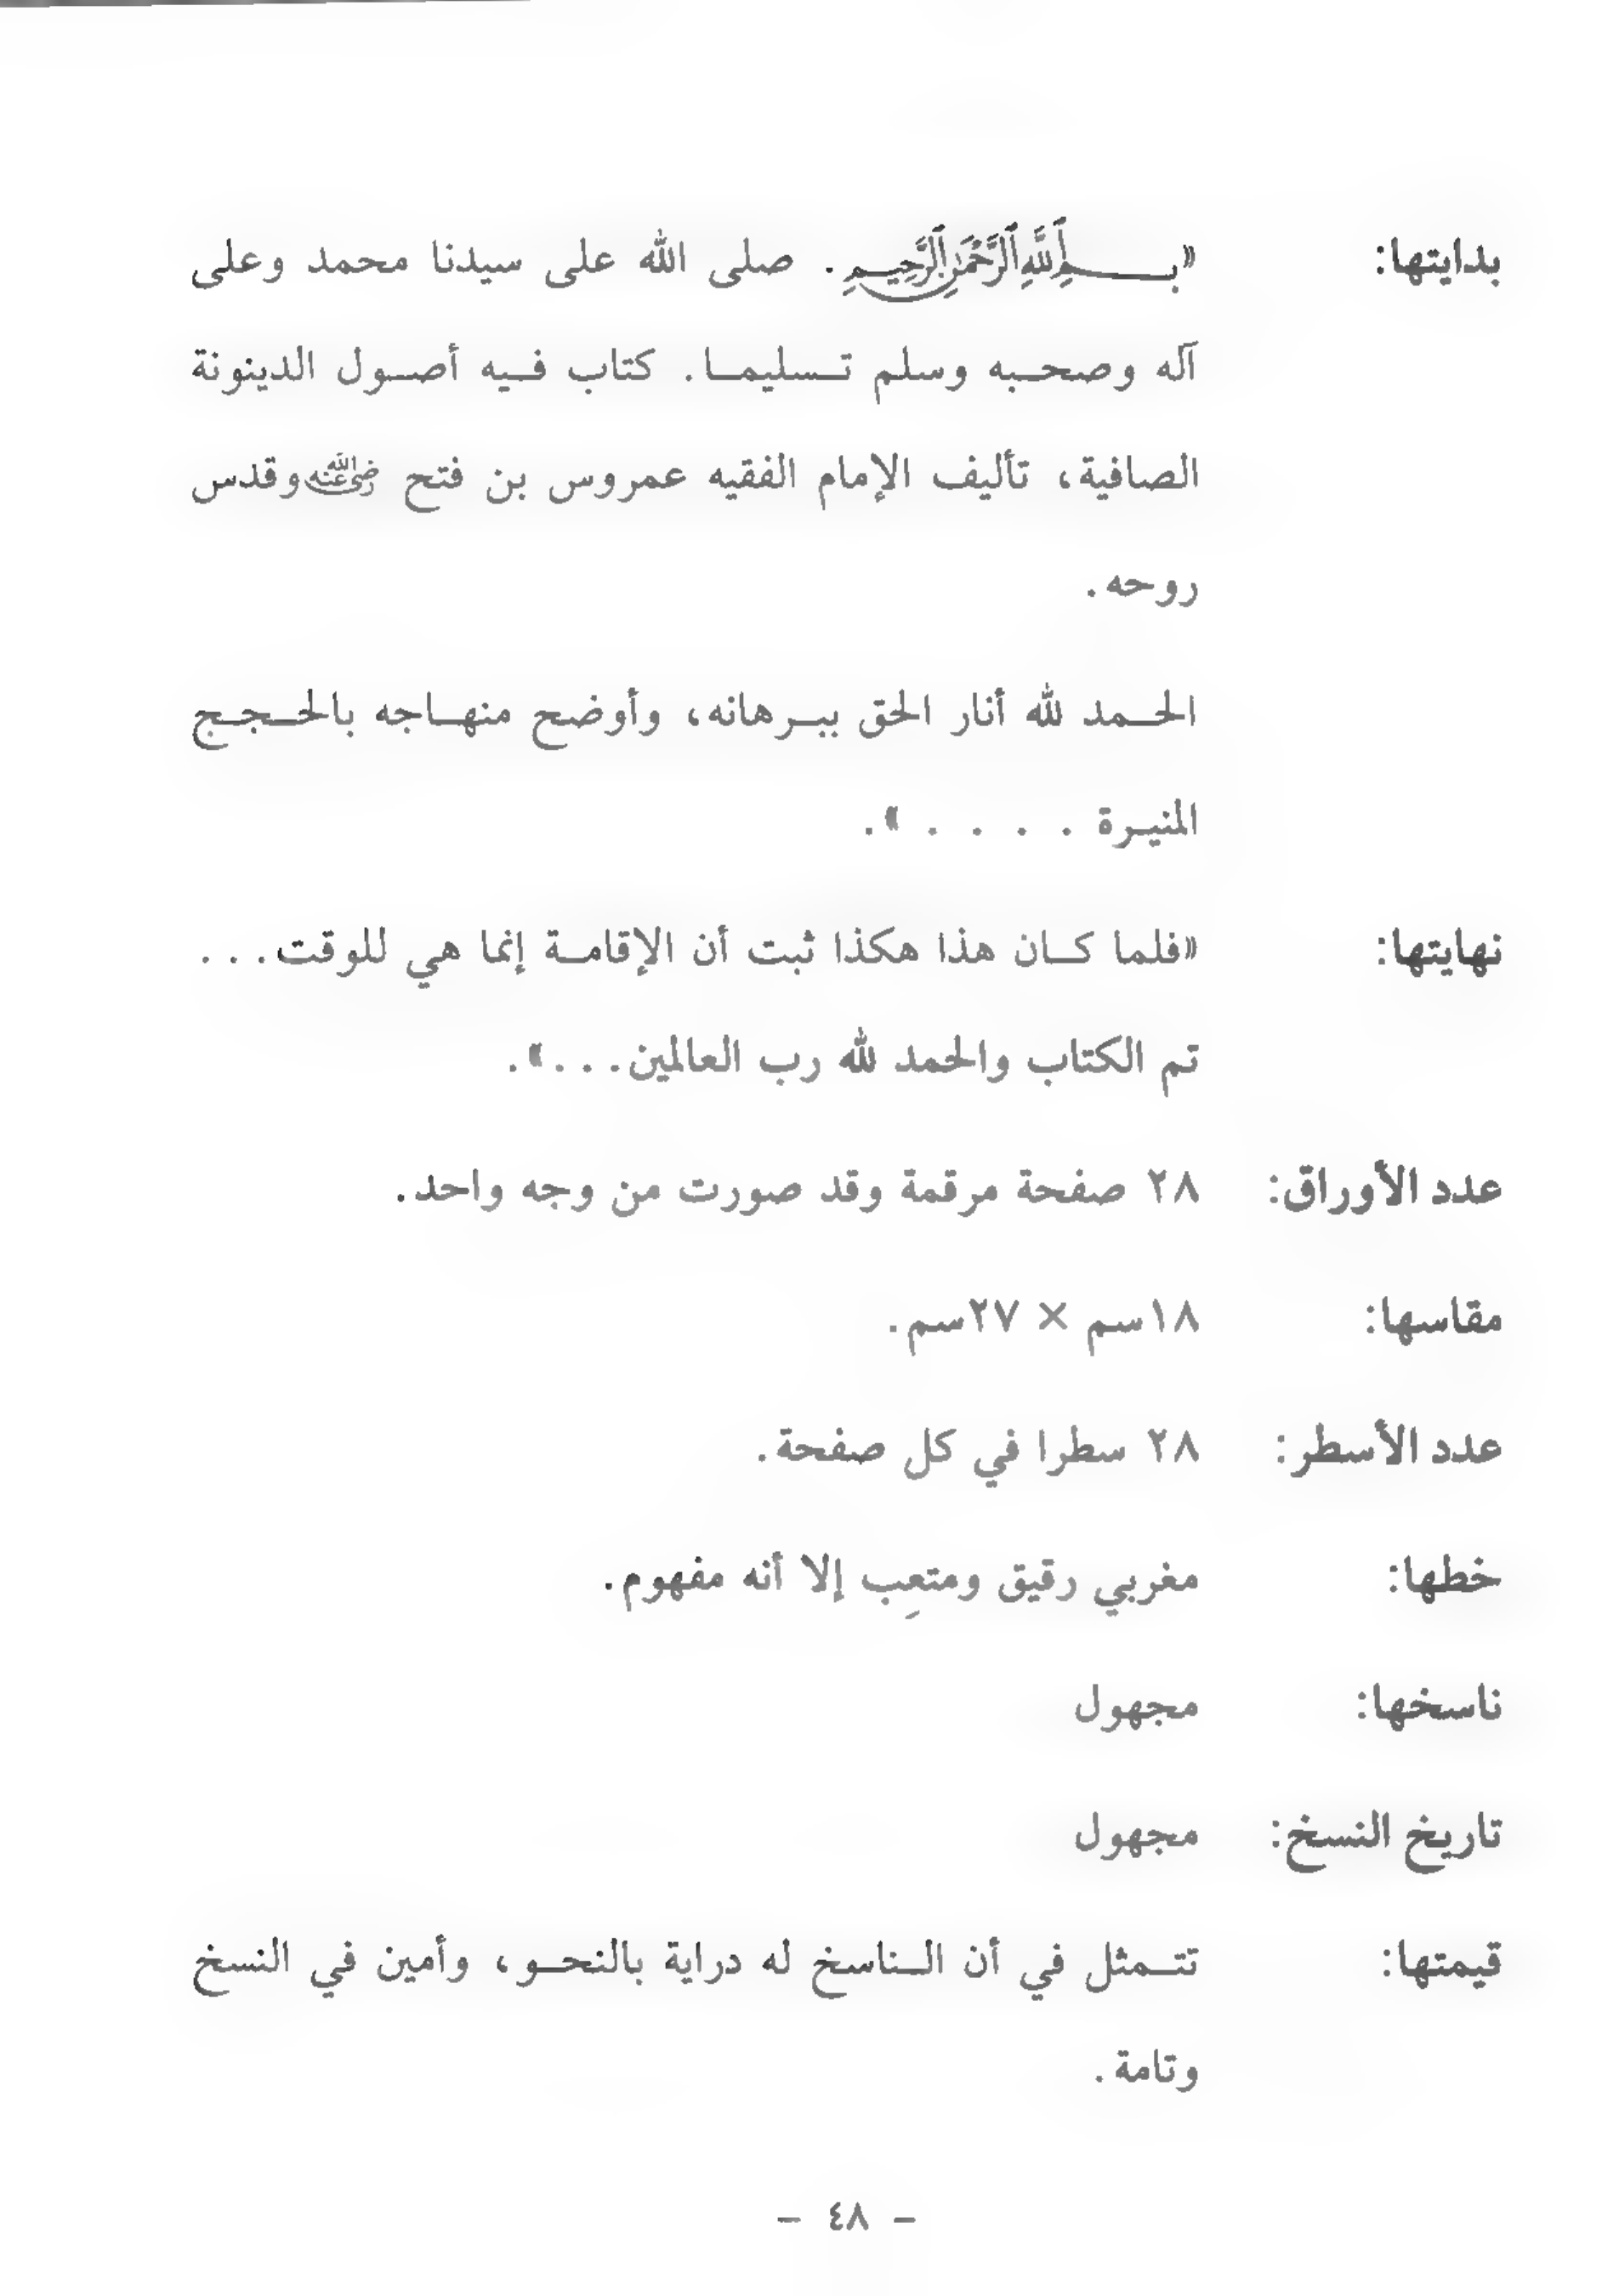 بدايتها: «بِسْمِ ٱللَّهِ ٱلرَّحْمَٰنِ ٱلرَّحِيمِ. صلى الله على سيدنا محمد وعلى
آله وصحبه وسلم تسليما. كتاب فيه أصول الدينونة
الصافية، تأليف الإمام الفقيه عمروس بن فتح رضي الله عنه وقدس
روحه.
الحمد لله أنار الحق ببرهانه، وأوضح منهاجه بالحجج
المنيرة . . . . ».
نهايتها: «فلما كان هذا هكذا ثبت أن الإقامة إنما هي للوقت...
تم الكتاب والحمد لله رب العالمين...».
عدد الأوراق: ٢٨ صفحة مرقمة وقد صورت من وجه واحد.
مقاسها: ١٨سم × ٢٧سم.
عدد الأسطر: ٢٨ سطرا في كل صفحة.
خطها: مغربي رقيق ومتعِب إلا أنه مفهوم.
ناسخها: مجهول
تاريخ النسخ: مجهول
قيمتها: تتمثل في أن الناسخ له دراية بالنحو، وأمين في النسخ
وتامة.
– ٤٨ –